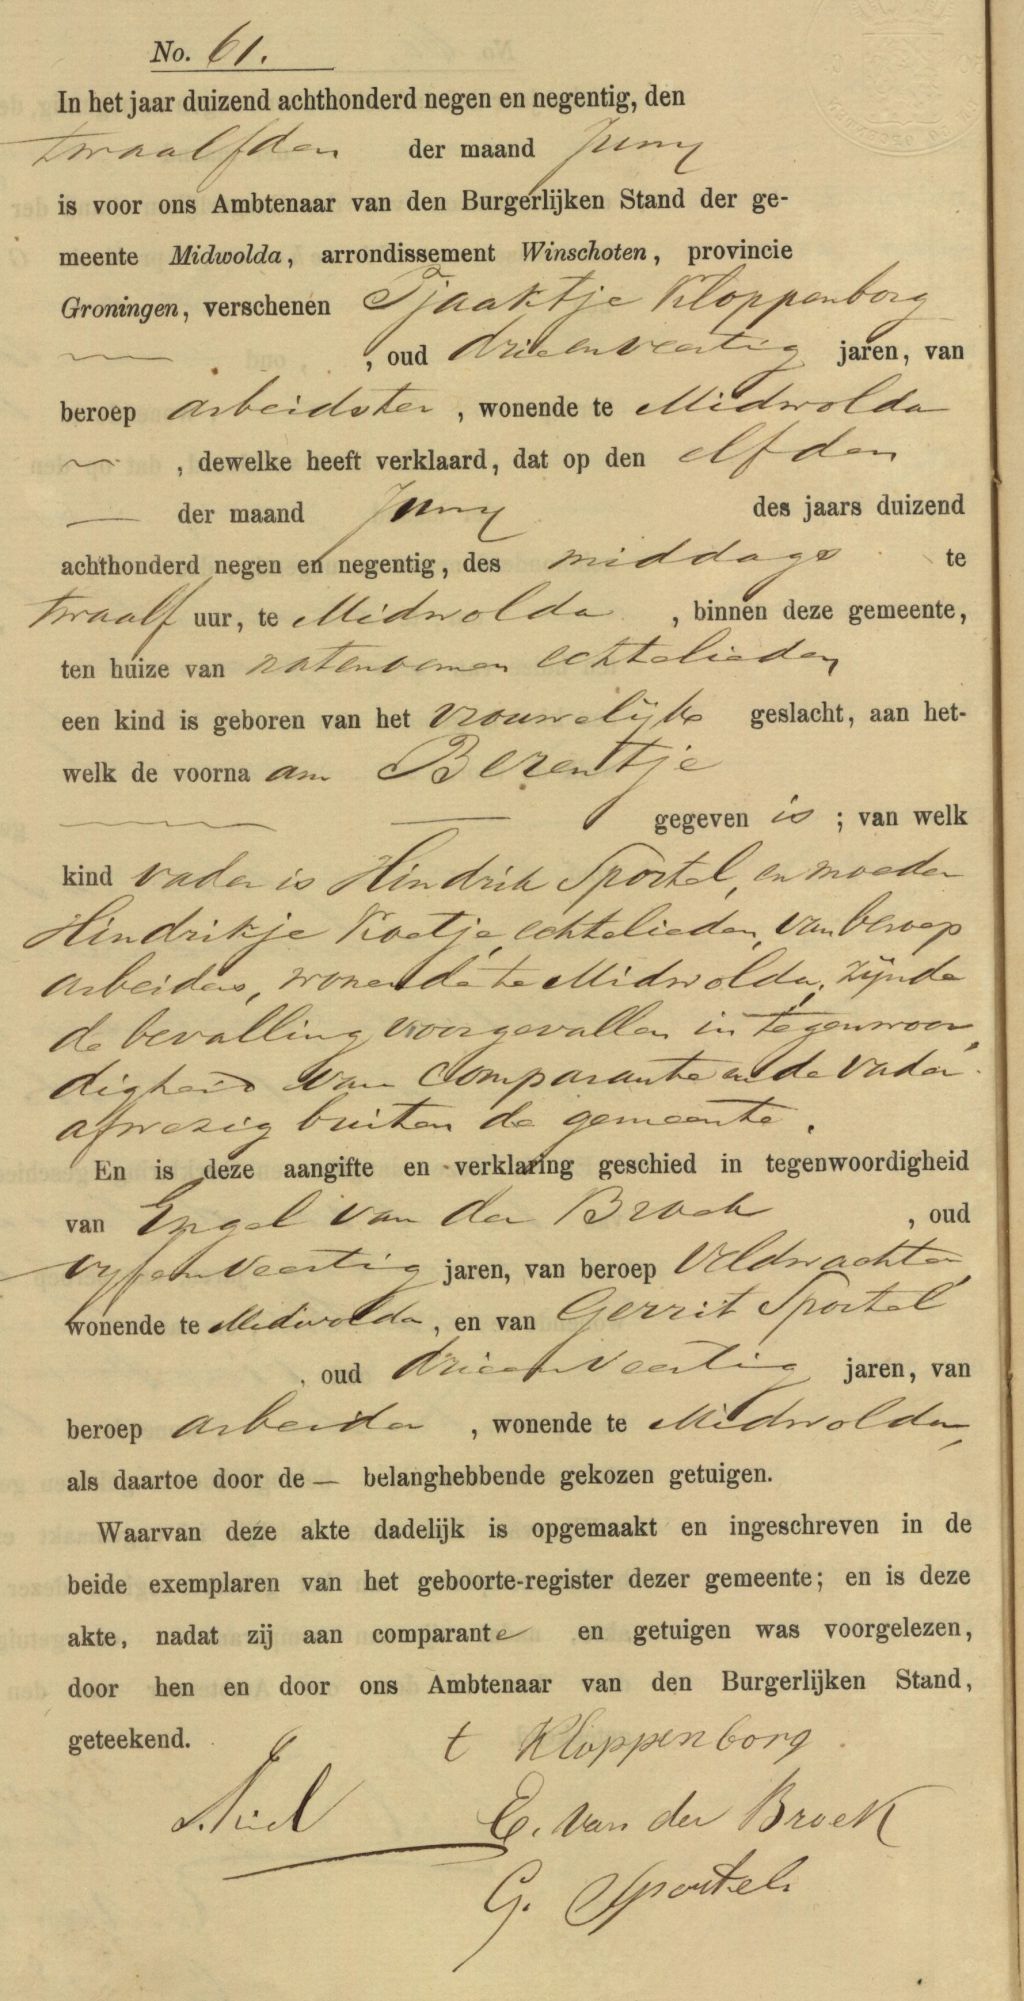 No. 61.
In het jaar duizend achthonderd negen en negentig, den
twaalfden der maand Juny
is voor ons Ambtenaar van den Burgerlijken Stand der ge-
meente Midwolda, arrondissement Winschoten, provincie
Groningen, verschenen Tjaaktje Kloppenborg
, oud drieenveertig jaren, van
beroep arbeidster, wonende te Midwolda
, dewelke heeft verklaard, dat op den elfden
der maand Juny des jaars duizend
achthonderd negen en negentig, des middags te
twaalf uur, te Midwolda, binnen deze gemeente,
ten huize van natenoemen echtelieden
een kind is geboren van het vrouwelijke geslacht, aan het-
welk de voornaam Berentje
gegeven is; van welk
kind vader is Hindrik Sportel, en moeder
Hindrikje Koetje, echtelieden, van beroep
arbeiders, wonende te Midwolda, zijnde
de bevalling voorgevallen in tegenwoor
digheid van comparante en de vader
afwezig buiten de gemeente.
En is deze aangifte en verklaring geschied in tegenwoordigheid
van Engel van der Broek, oud
vyfenveertig jaren, van beroep veldwachter,
wonende te Midwolda, en van Gerrit Sportel
, oud drieenveertig jaren, van
beroep arbeider, wonende te Midwolda,
als daartoe door de — belanghebbende gekozen getuigen.
Waarvan deze akte dadelijk is opgemaakt en ingeschreven in de
beide exemplaren van het geboorte-register dezer gemeente; en is deze
akte, nadat zij aan comparante en getuigen was voorgelezen,
door hen en door ons Ambtenaar van den Burgerlijken Stand,
geteekend.
t Kloppenborg
E. van der Broek
G. Sportel